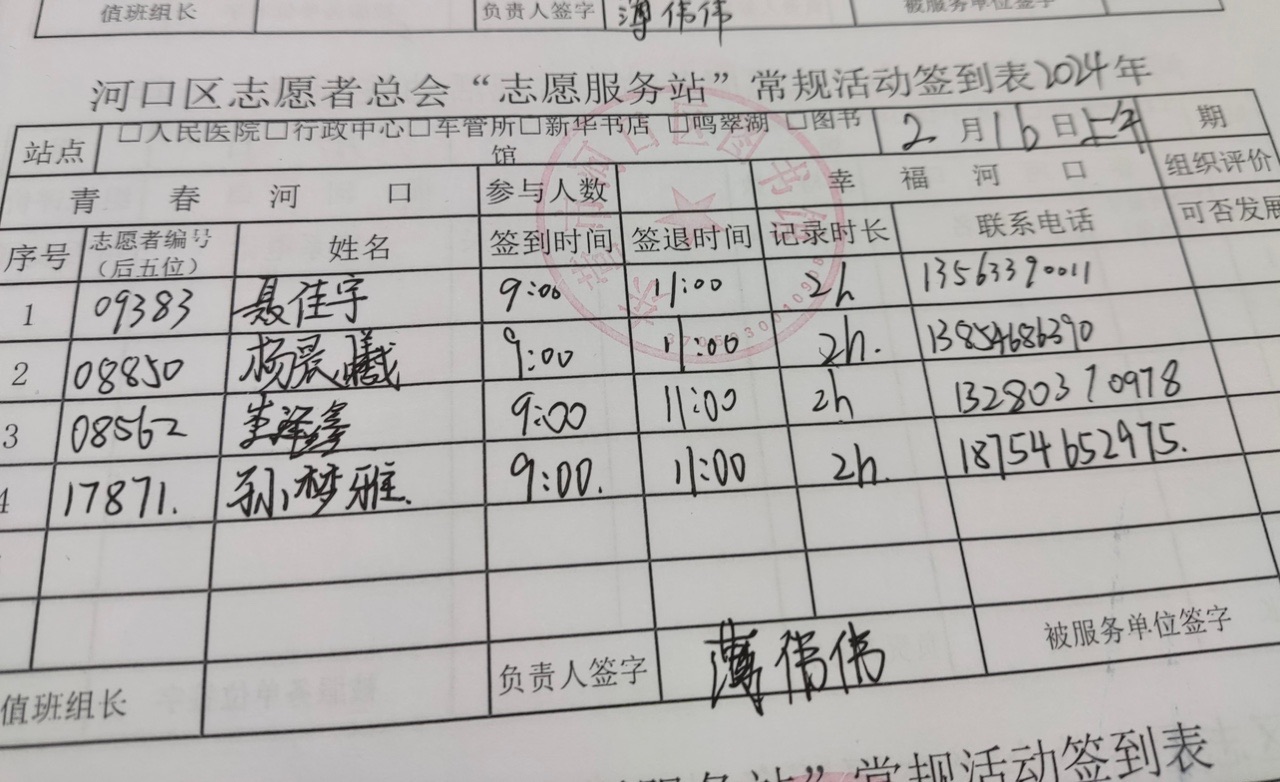 值班组长 负责人签字 薄伟伟 被服务单位签字
河口区志愿者总会“志愿服务站”常规活动签到表2024年
站点 □人民医院□行政中心□车管所□新华书店 □鸣翠湖 □图书馆 2月16日上午 期
青春河口 参与人数 幸福河口 组织评价
序号 志愿者编号（后五位） 姓名 签到时间 签退时间 记录时长 联系电话 可否发展
1 09383 聂佳宇 9:00 11:00 2h 13563390011
2 08850 杨晨曦 9:00 11:00 2h. 13854686390
3 08562 李泽鑫 9:00 11:00 2h 13280370978
4 17871. 孙梦雅. 9:00. 11:00 2h. 18754652975.
值班组长 负责人签字 薄伟伟 被服务单位签字
服务站”常规活动签到表